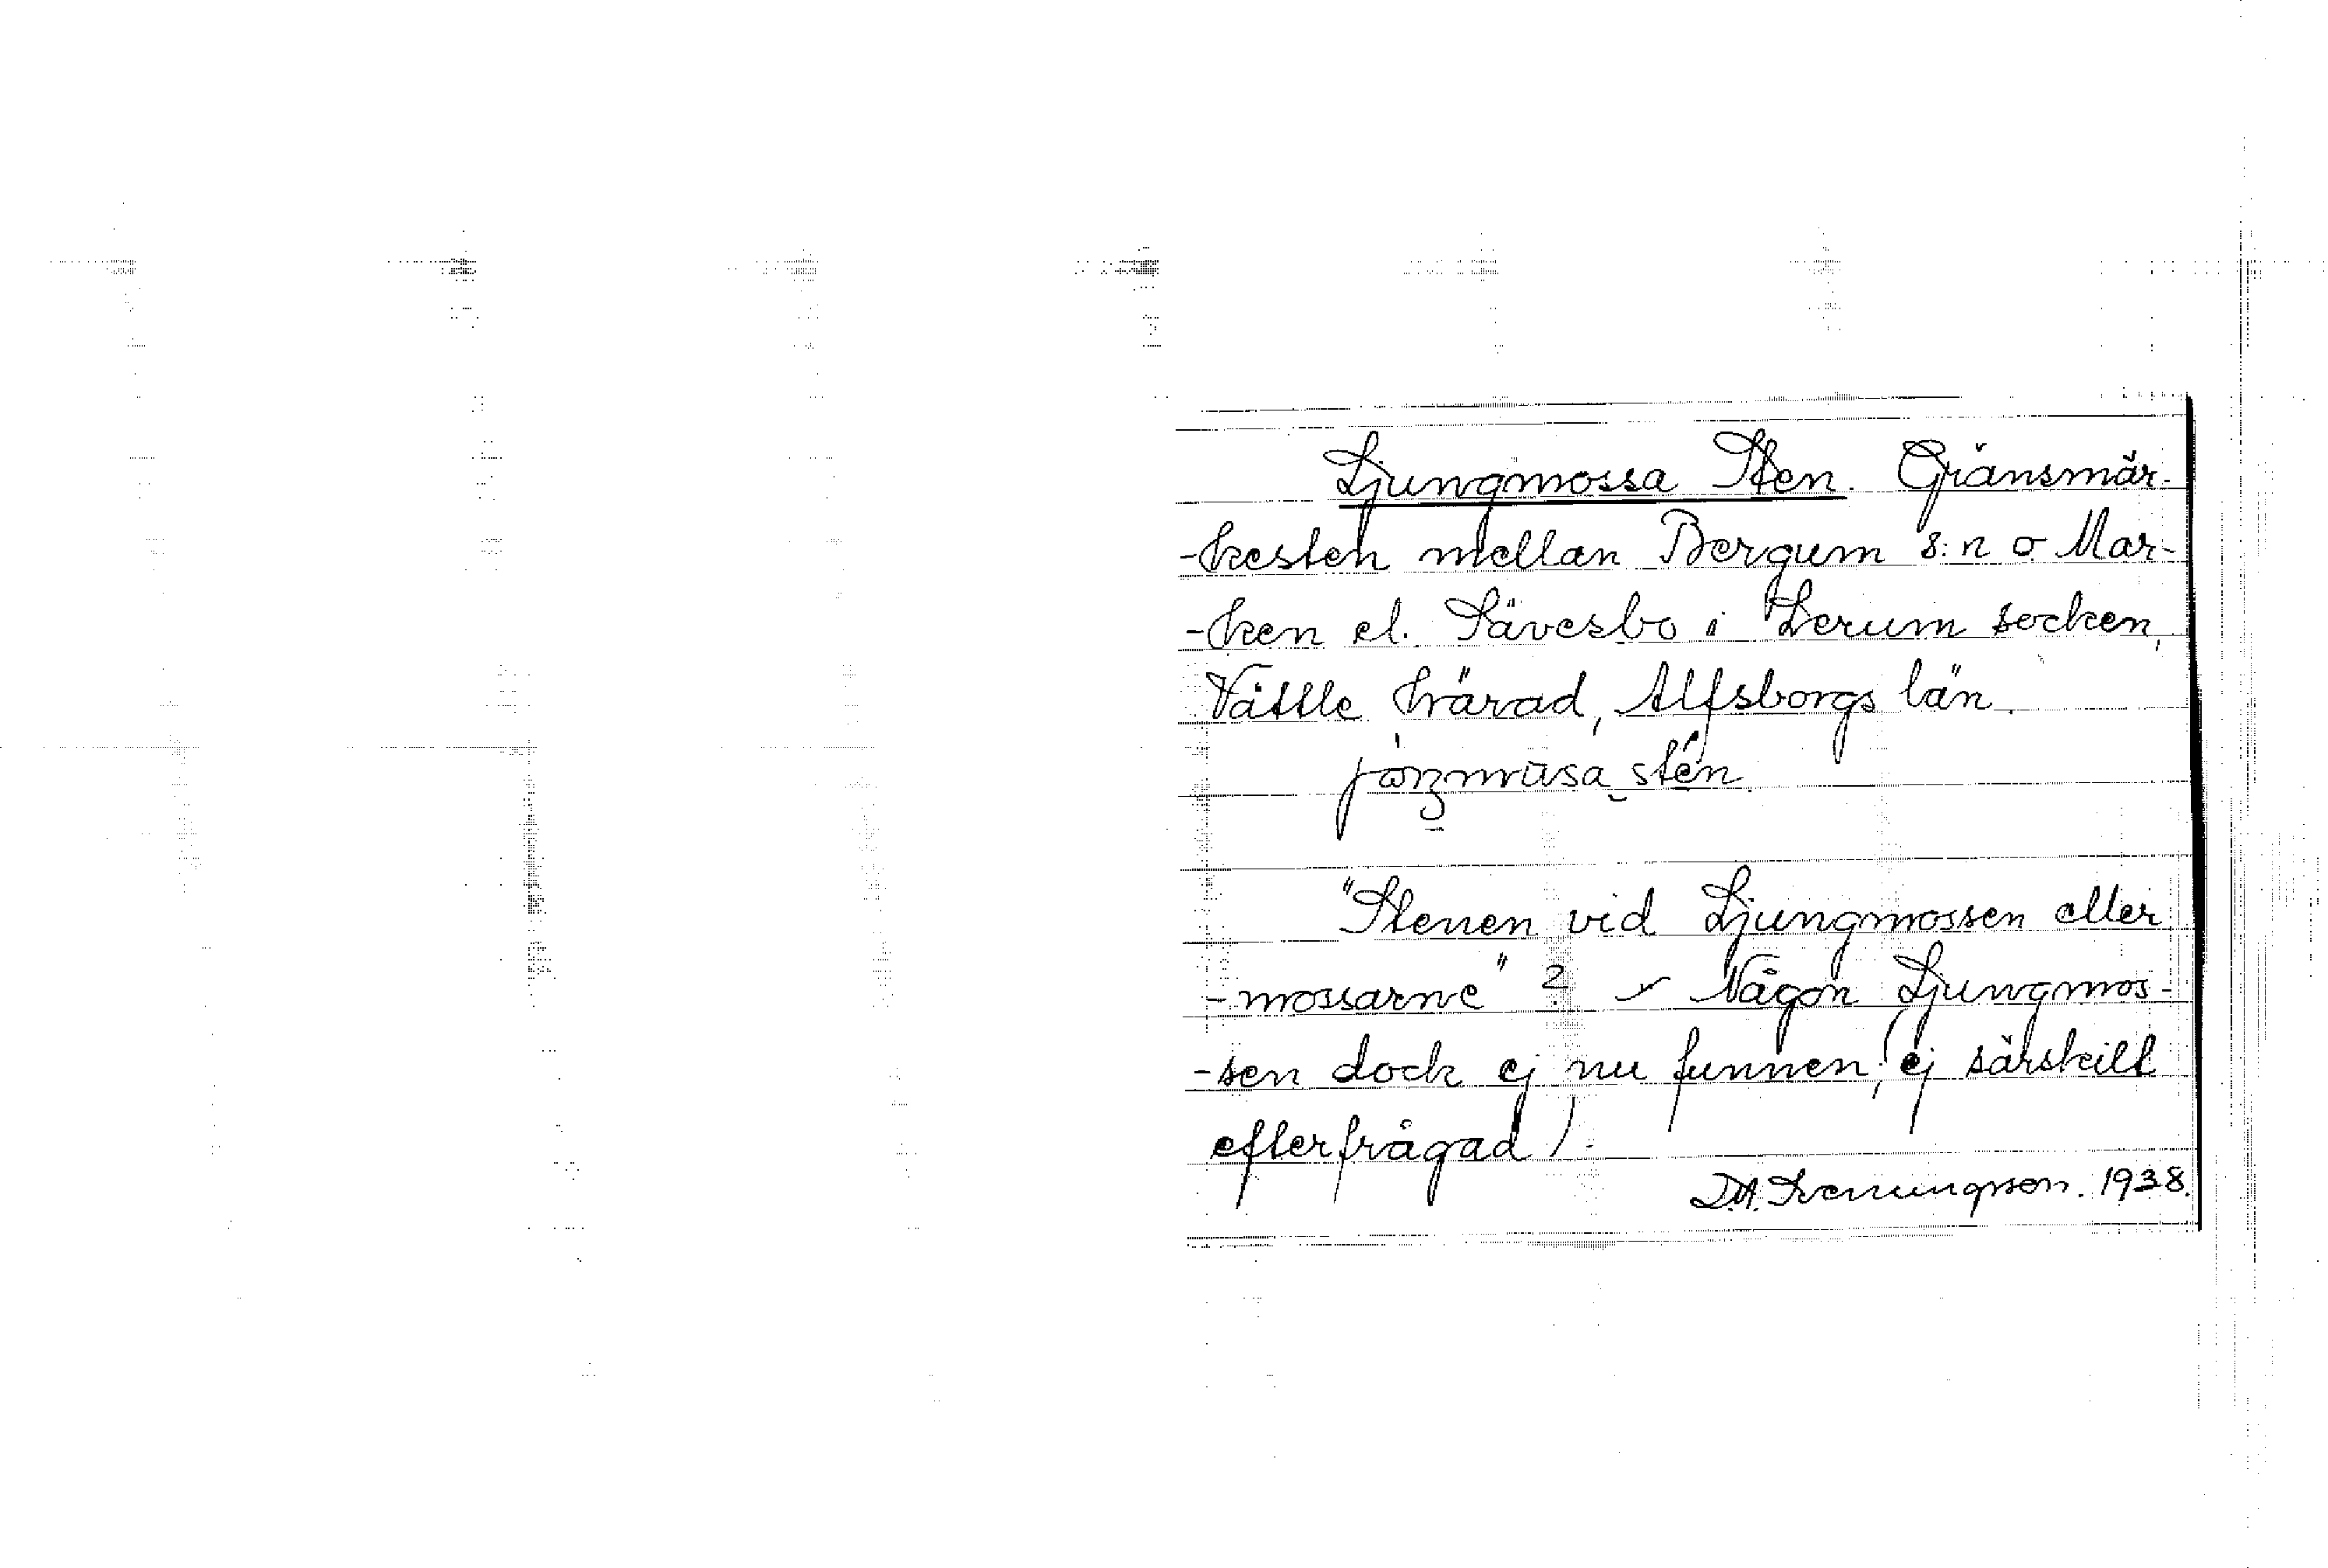 Ljungmossa Sten. Gränsmär-
-kesten mellan Bergum s:n o. Mar-
-ken el. Sävesbo i Lerum socken,
Vättle härad, Älfsborgs län.
"Stenen vid Ljungmossen eller
-mossarne" ? - Någon Ljungmos-
-sen dock ej nu funnen (ej särskilt
efterfrågad).
D.A. Svenungsson. 1938.